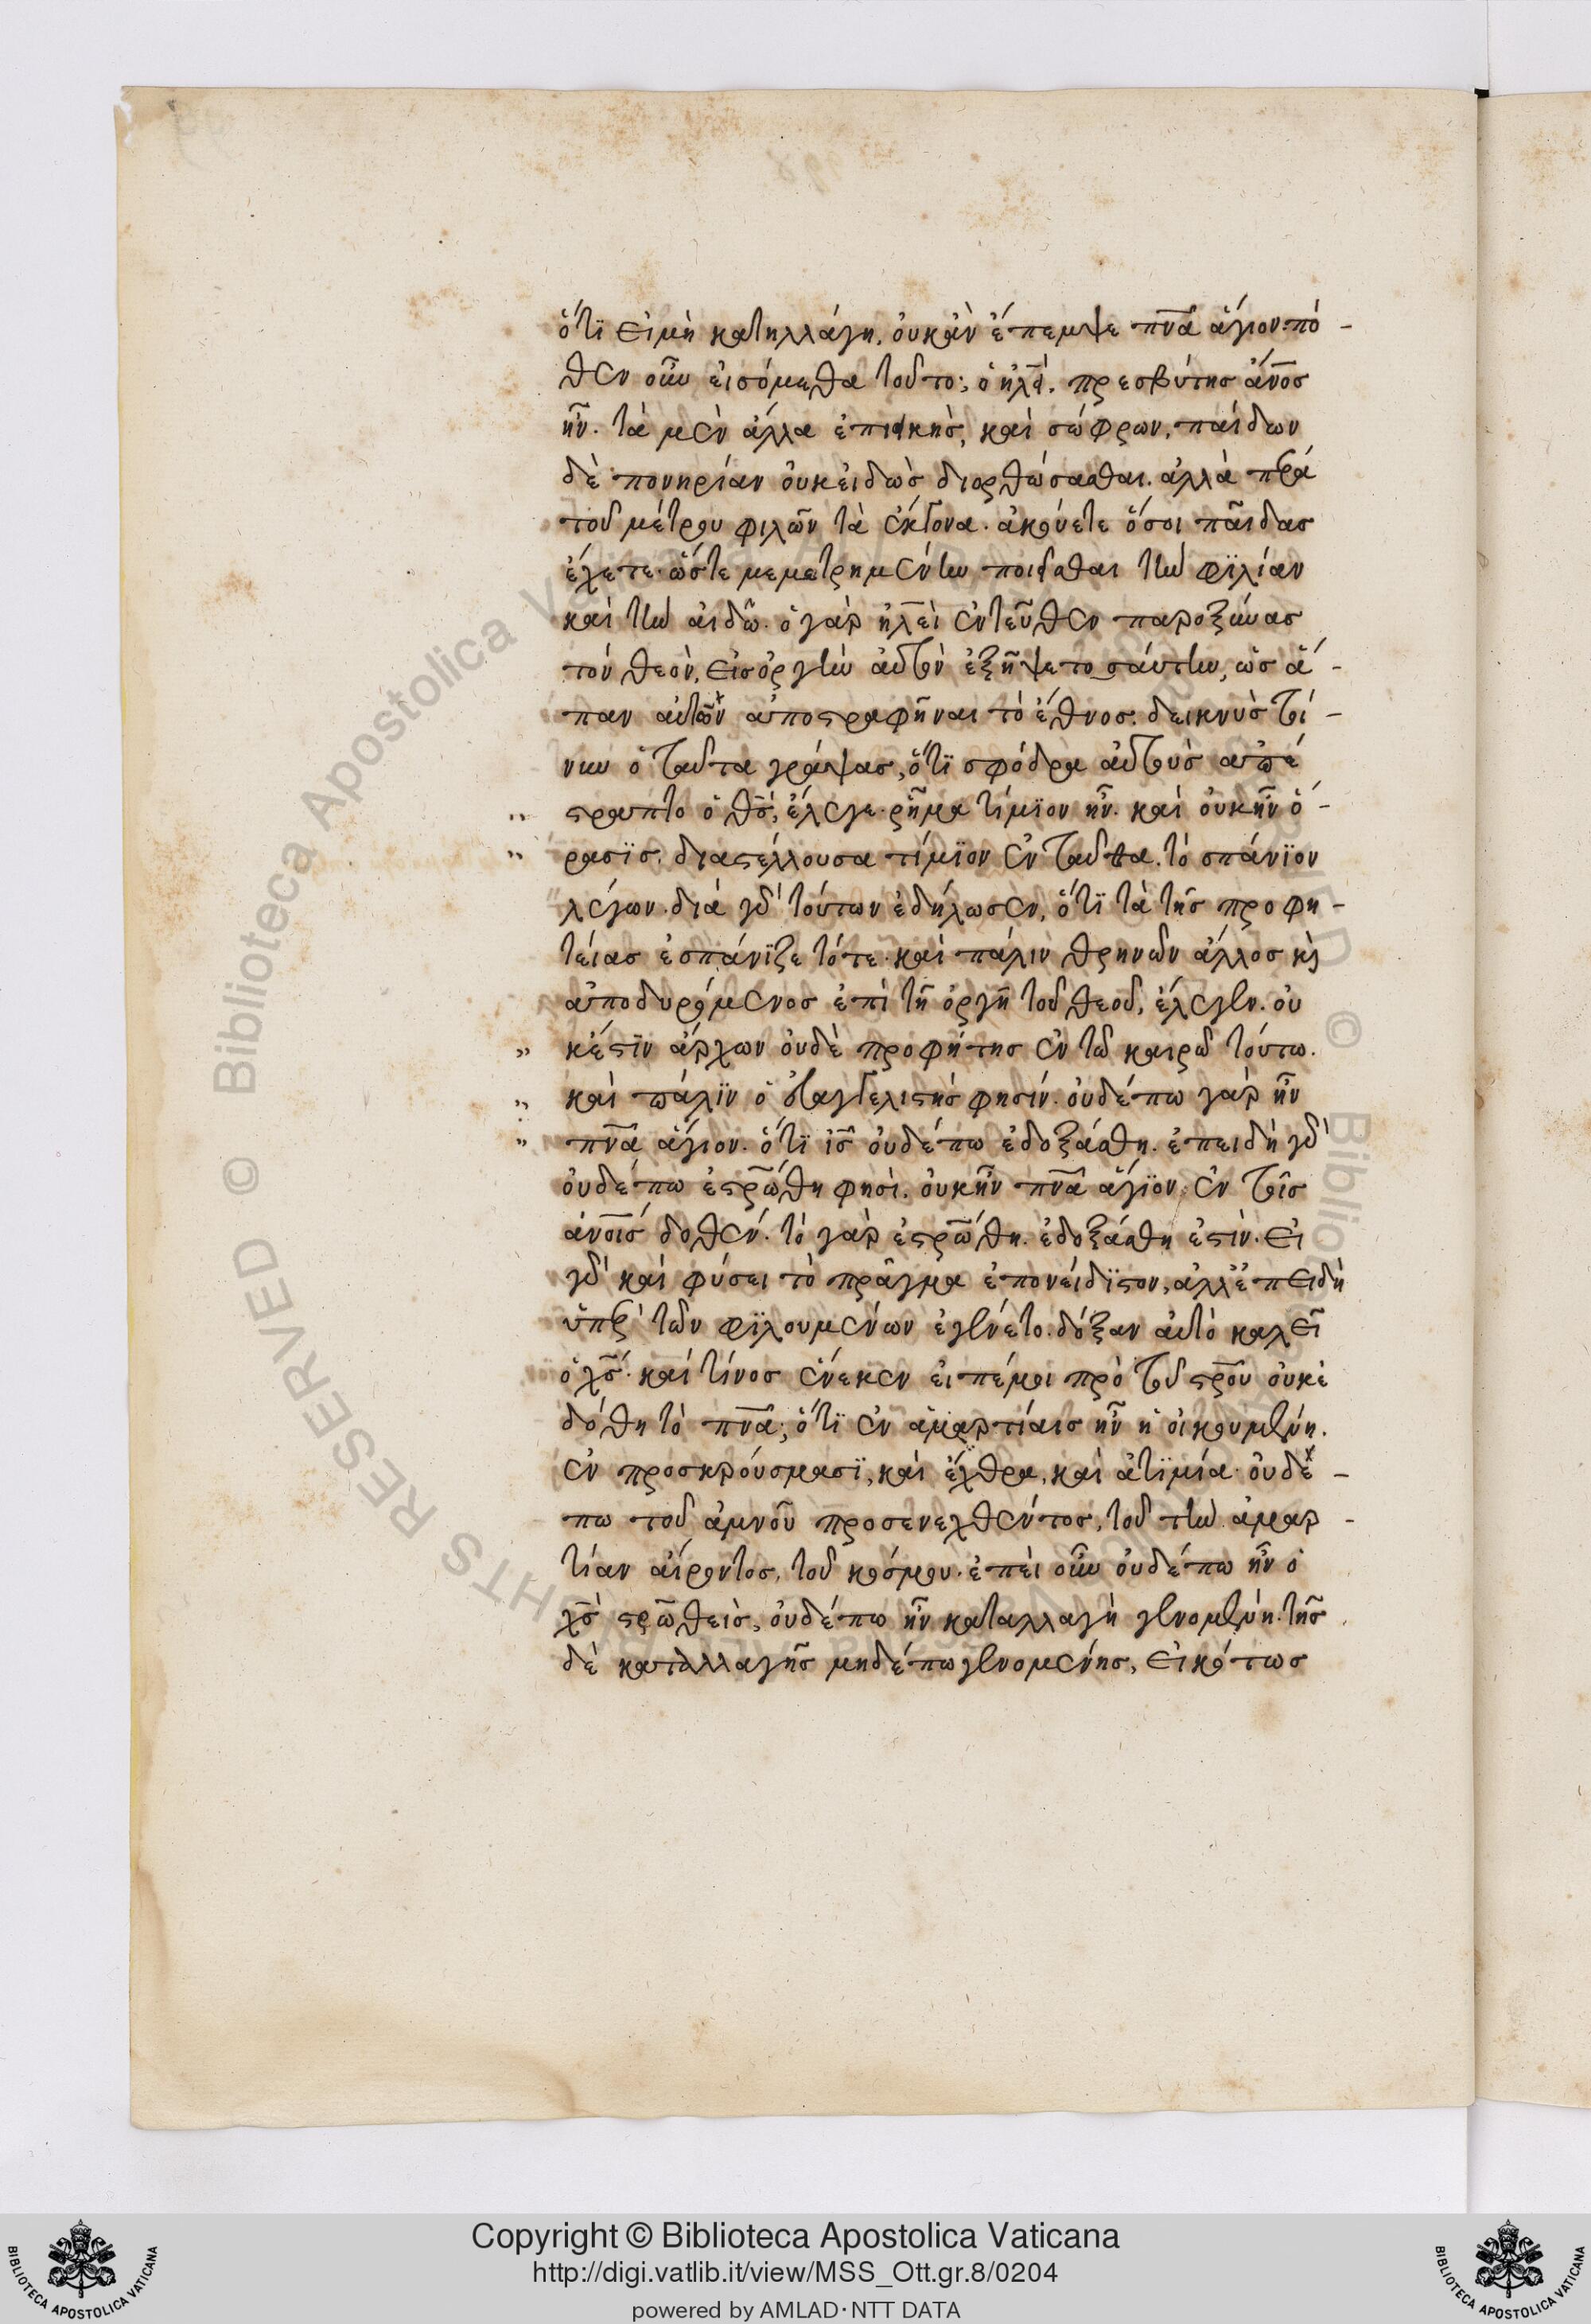 ὅτϊ εἰμὴ κατηλλάγη, οὐκἂν ἔπεμψε πνᾶ ἅγιον· πό-
θεν οὖν εἰσόμεθα τοῦτο; ὁ ἠλὶ, πρεσβύτης ἄνος
ἦν. τὰ μὲν ἄλλα ἐπιεικὴς, καὶ σώφρων, παίδων
δὲ πονηρίαν οὐκεἰδὼς διορθώσασθαι. ἀλλὰ πρὰ
τοῦ μέτρου φιλῶν τὰ ἔκγονα. ἀκούετε ὅσοι παῖδας
ἔχετε· ὥστε μεμετρημένην ποιεῖσθαι τὴν φϊλίαν
καὶ τὴν αἰδῶ. ὁ γὰρ ἠλεὶ ἐντεῦθεν παροξύνας
τὸν θεὸν, εἰσὀργὴν αὐτὸν ἐξῆψε τοσαύτην, ὡς ἅ-
παν αὐτῶν ἀποστραφῆναι τὸ ἔθνος. δεικνὺς τοί-
νυν ὁ ταῦτα γράψας, ὅτϊ σφόδρα αὐτοὺς ἀπέ
στραπτο ὁ θς, ἔλεγε· ῥῆμα τίμϊον ἦν. καὶ οὐκῆν ὅ-
ρασϊς. διαστέλλουσα τίμϊον ἐν ταῦτα. τὸ σπάνϊον
λέγων. διὰ γὰρ τούτων ἐδήλωσεν, ὅτϊ τὰ τῆς προφη-
τείας ἐσπάνϊζε τότε· καὶ πάλιν θρηνῶν ἄλλος κὶ
ἀποδυρόμενος ἐπὶ τῇ ὀργῇ τοῦ θεοῦ, ἔλεγεν. οὐ
κέστϊν ἄρχων οὐδὲ προφήτης ἐν τῶ καιρῶ τούτω.
καὶ πάλϊν ὁ εὐαγγελιστής φησίν. οὐδέπω γὰρ ἦν
πνᾶ ἅγιον. ὅτϊ ις οὐδέπω ἐδοξάσθη. ἐπειδὴ γὰρ
οὐδέπω ἐστρώθη φησὶ. οὐκῆν πνᾶ ἅγϊον, ἐν τοῖς
ἀνοις δοθέν. τὸ γὰρ ἐστρώθη. ἐδοξάσθη ἐστὶν. εἰ
γὰρ καὶ φύσει τὸ πρᾶγμα ἐπονείδϊστον, ἀλλἐπειδὴ
ὑπὲρ τῶν φϊλουμένων ἐγένετο. δόξαν αὐτὸ καλεῖ
ὁ χς. καὶ τίνος ἕνεκεν εἰπέμοι πρὸ τοῦ στροῦ οὐκὲ
δόθη τὸ πνᾶ; ὅτϊ ἐν ἁμαρτίαις ἦν ἡ οἰκουμένη.
ἐν προσκρούσμασϊ, καὶ ἔχθρα, καὶ ἀτϊμία. οὐδέ-
πω τοῦ ἀμνοῦ προσενεχθέντος, τοῦ τὴν ἁμαρ-
τίαν αἴροντος, τοῦ κόσμου. ἐπεὶ οὖν οὐδέπω ἦν ὁ
χς στρωθεὶς, οὐδέπω ἦν καταλλαγὴ γενομένη. τῆς
δὲ καταλλαγῆς μηδέπω γενομένης, εἰκότως
Copyright © Biblioteca Apostolica Vaticana
http://digi.vatlib.it/view/MSS_Ott.gr.8/0204
powered by AMLAD·NTT DATA